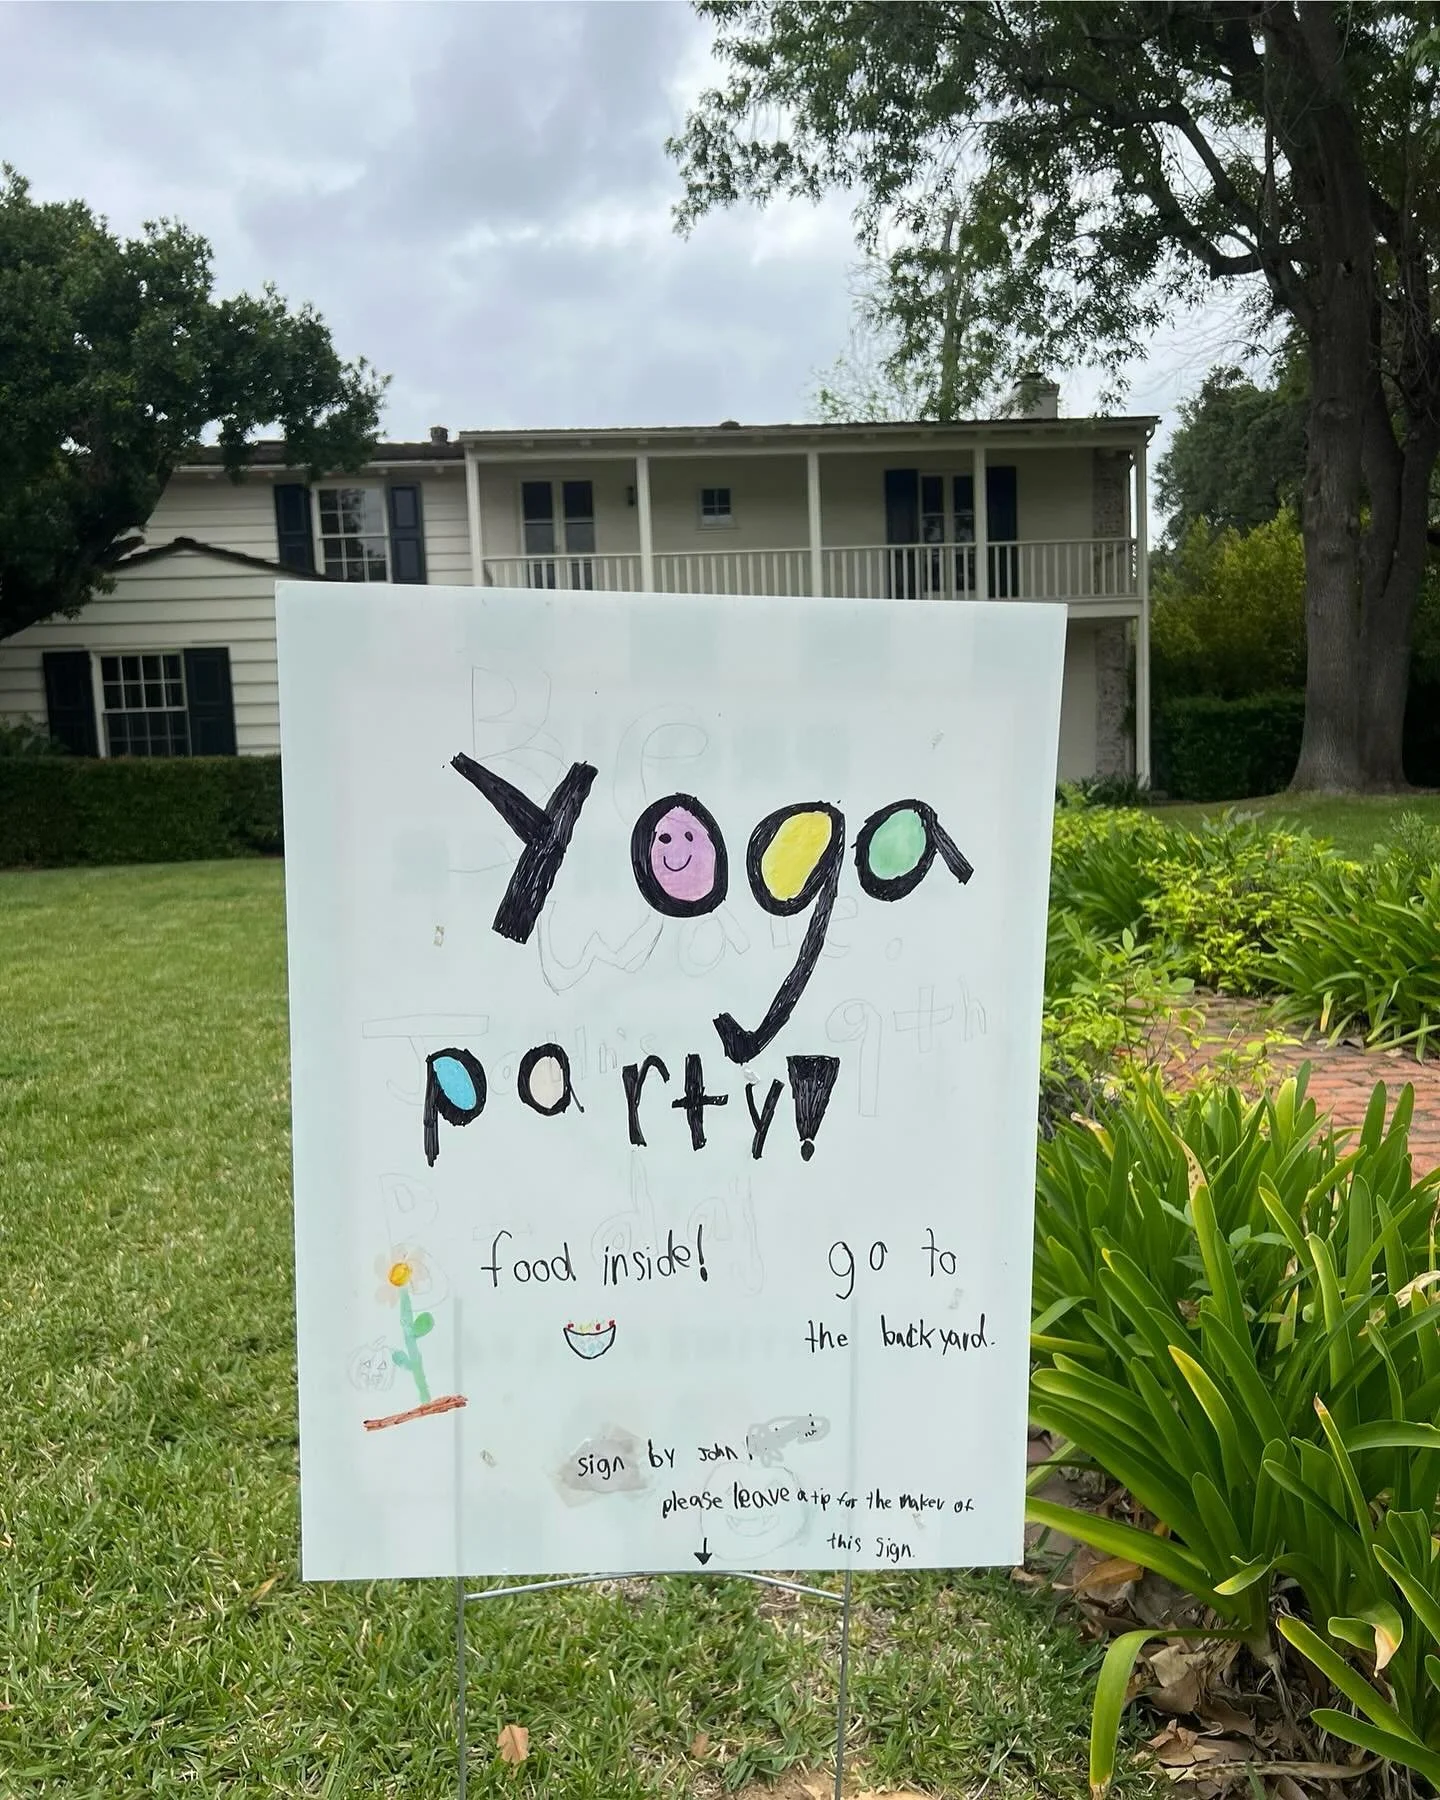 Be
Ware.
9th
yoga
party!
food inside!
go to
the backyard.
sign by john
please leave a tip for the maker of
this sign.